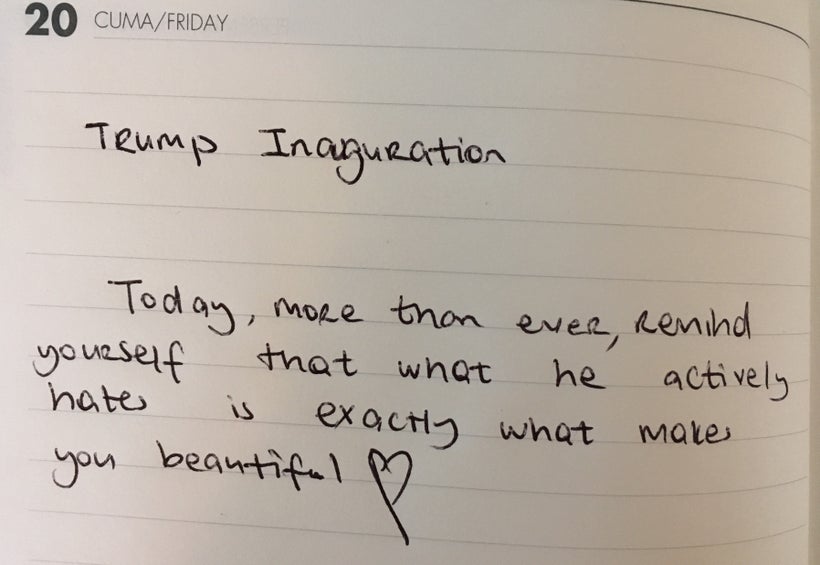 20 CUMA/FRIDAY
Trump Inaguration
Today, more than ever, remind
yourself that what he actively
hates is exactly what makes
you beautiful